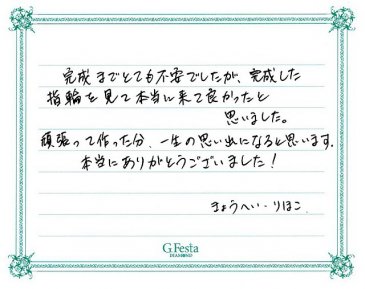 完成までとても不安でしたが、完成した
指輪を見て本当に来て良かったと
思いました。
頑張って作った分、一生の思い出になると思います。
本当にありがとうございました!
きょうへい・りほこ
G.Festa
DIAMOND